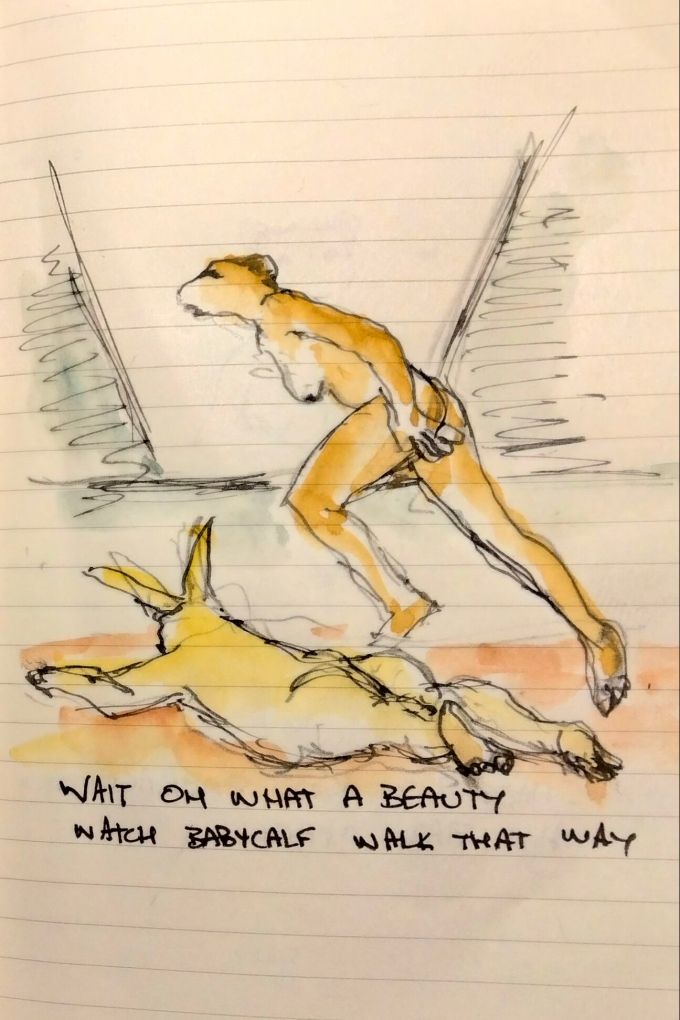 WAIT OH WHAT A BEAUTY
WATCH BABYCALF WALK THAT WAY